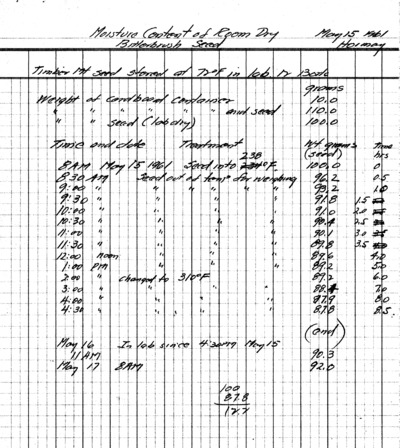 Moisture Content of Room Dry May 15 1961
Bitterbrush Seed Hormay
Timber Mt seed stored at 72°F in lab. in Boxes
grams
Weight of cardboard container 10.0
" " " and seed 110.0
" " seed (lab dry) 100.0
Time and date Treatment Wt grams Time
(seed) hrs
238
8 AM May 15 1961 Seed into °F. 100.0 0
8:30 AM Seed out at temp for weighing 96.2 0.5
9:00 " " " " " " " 93.2 1.0
9:30 " " " " " " " 91.8 1.5
10:00 " " " " " " " 91.0 2.0
10:30 " " " " " " " 90.4 2.5
11:00 " " " " " " " 90.1 3.0
11:30 " " " " " " " 89.8 3.5
12:00 noon " " " " " " 89.6 4.0
1:00 PM " " " " " " 89.2 5.0
2:00 " changed to 310°F 89.2 6.0
3:00 " " " " " 88.4 7.0
4:00 " " " " " 87.9 8.0
4:30 " " " " " 87.8 8.5
(and)
May 16 In lab since 4:30 PM May 15
11 AM 90.3
May 17 8AM 92.0
100
87.8
12.2